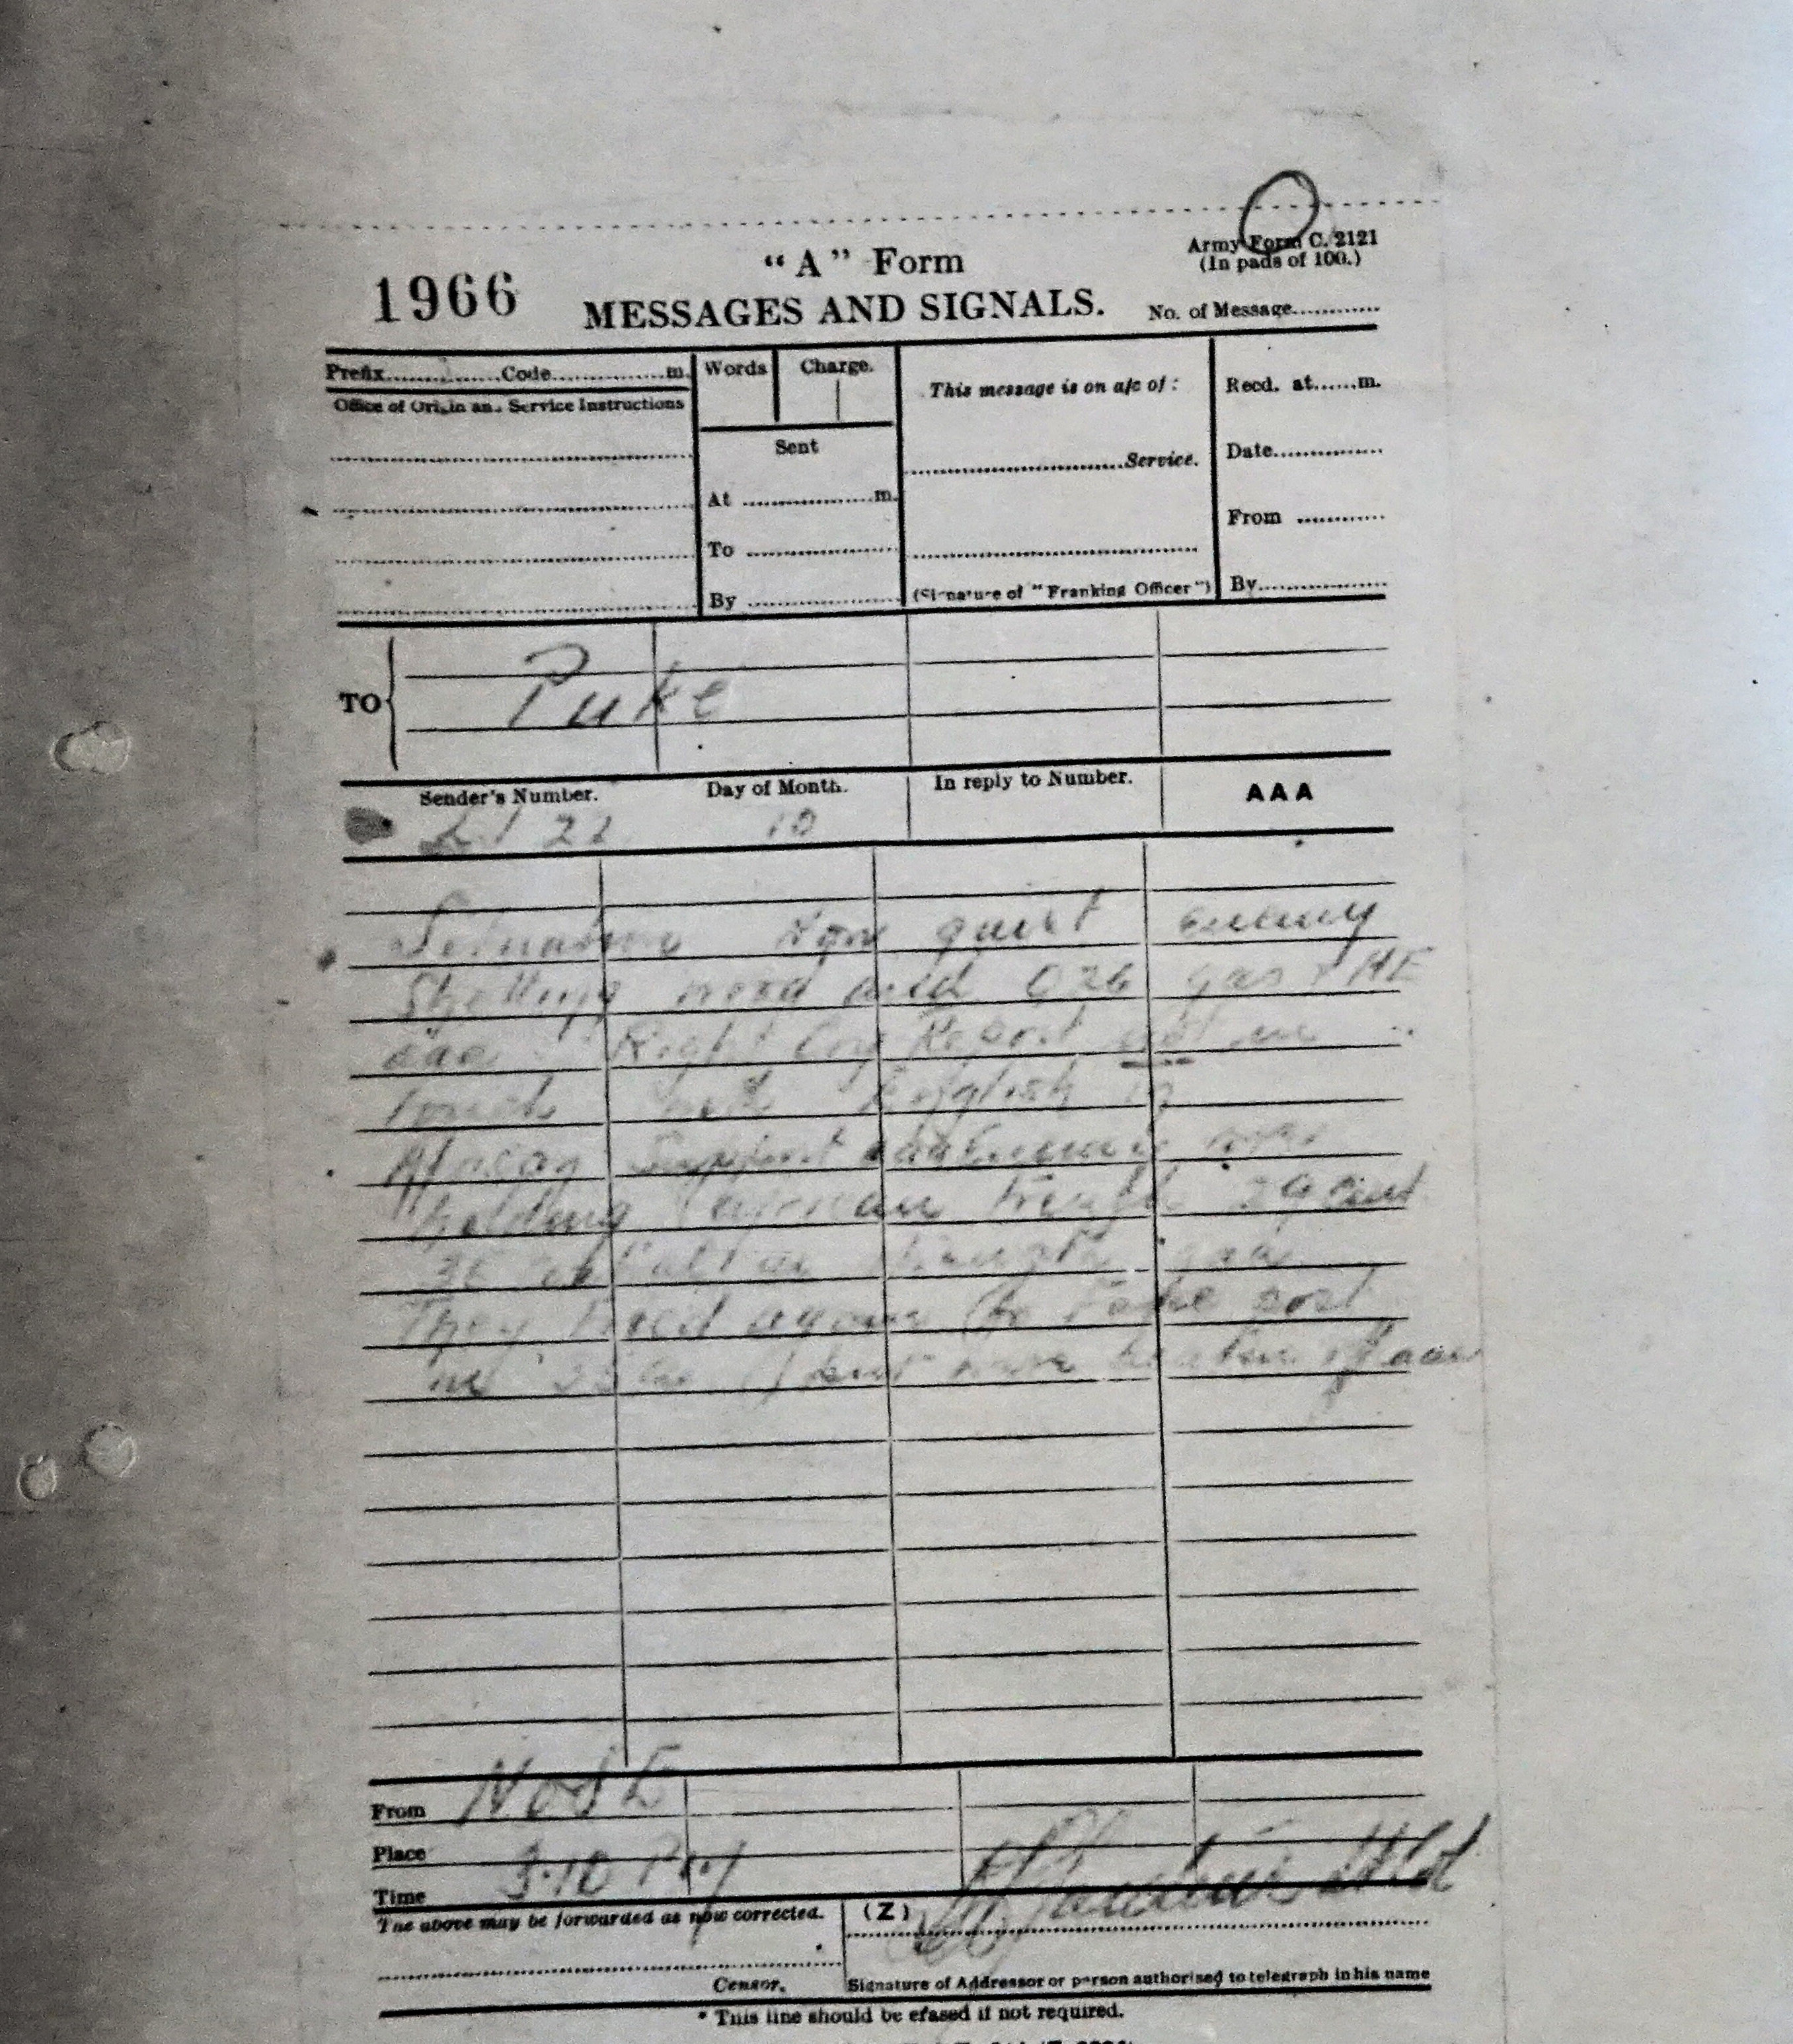 1966
"A" Form
MESSAGES AND SIGNALS.
Army Form C. 2121
(In pads of 100.)
No. of Message
Prefix Code m.
Office of Origin and Service Instructions
Words Charge.
Sent
At m.
To
By
This message is on a/c of :
Service.
(Signature of "Franking Officer")
Recd. at m.
Date
From
By
TO Puke
Sender's Number. Day of Month. In reply to Number. AAA
22 10
Situation now quiet enemy
Shelling wood and O26 gas & HE
aaa Right Coy Report not in
touch with English in
Support aaa Enemy
holding trench
strength aaa
They tried again to take post
in but were beaten off aaa
From NOSE
Place
Time 3.10 PM
The above may be forwarded as now corrected. (Z)
Censor. Signature of Addressor or person authorised to telegraph in his name
* This line should be erased if not required.